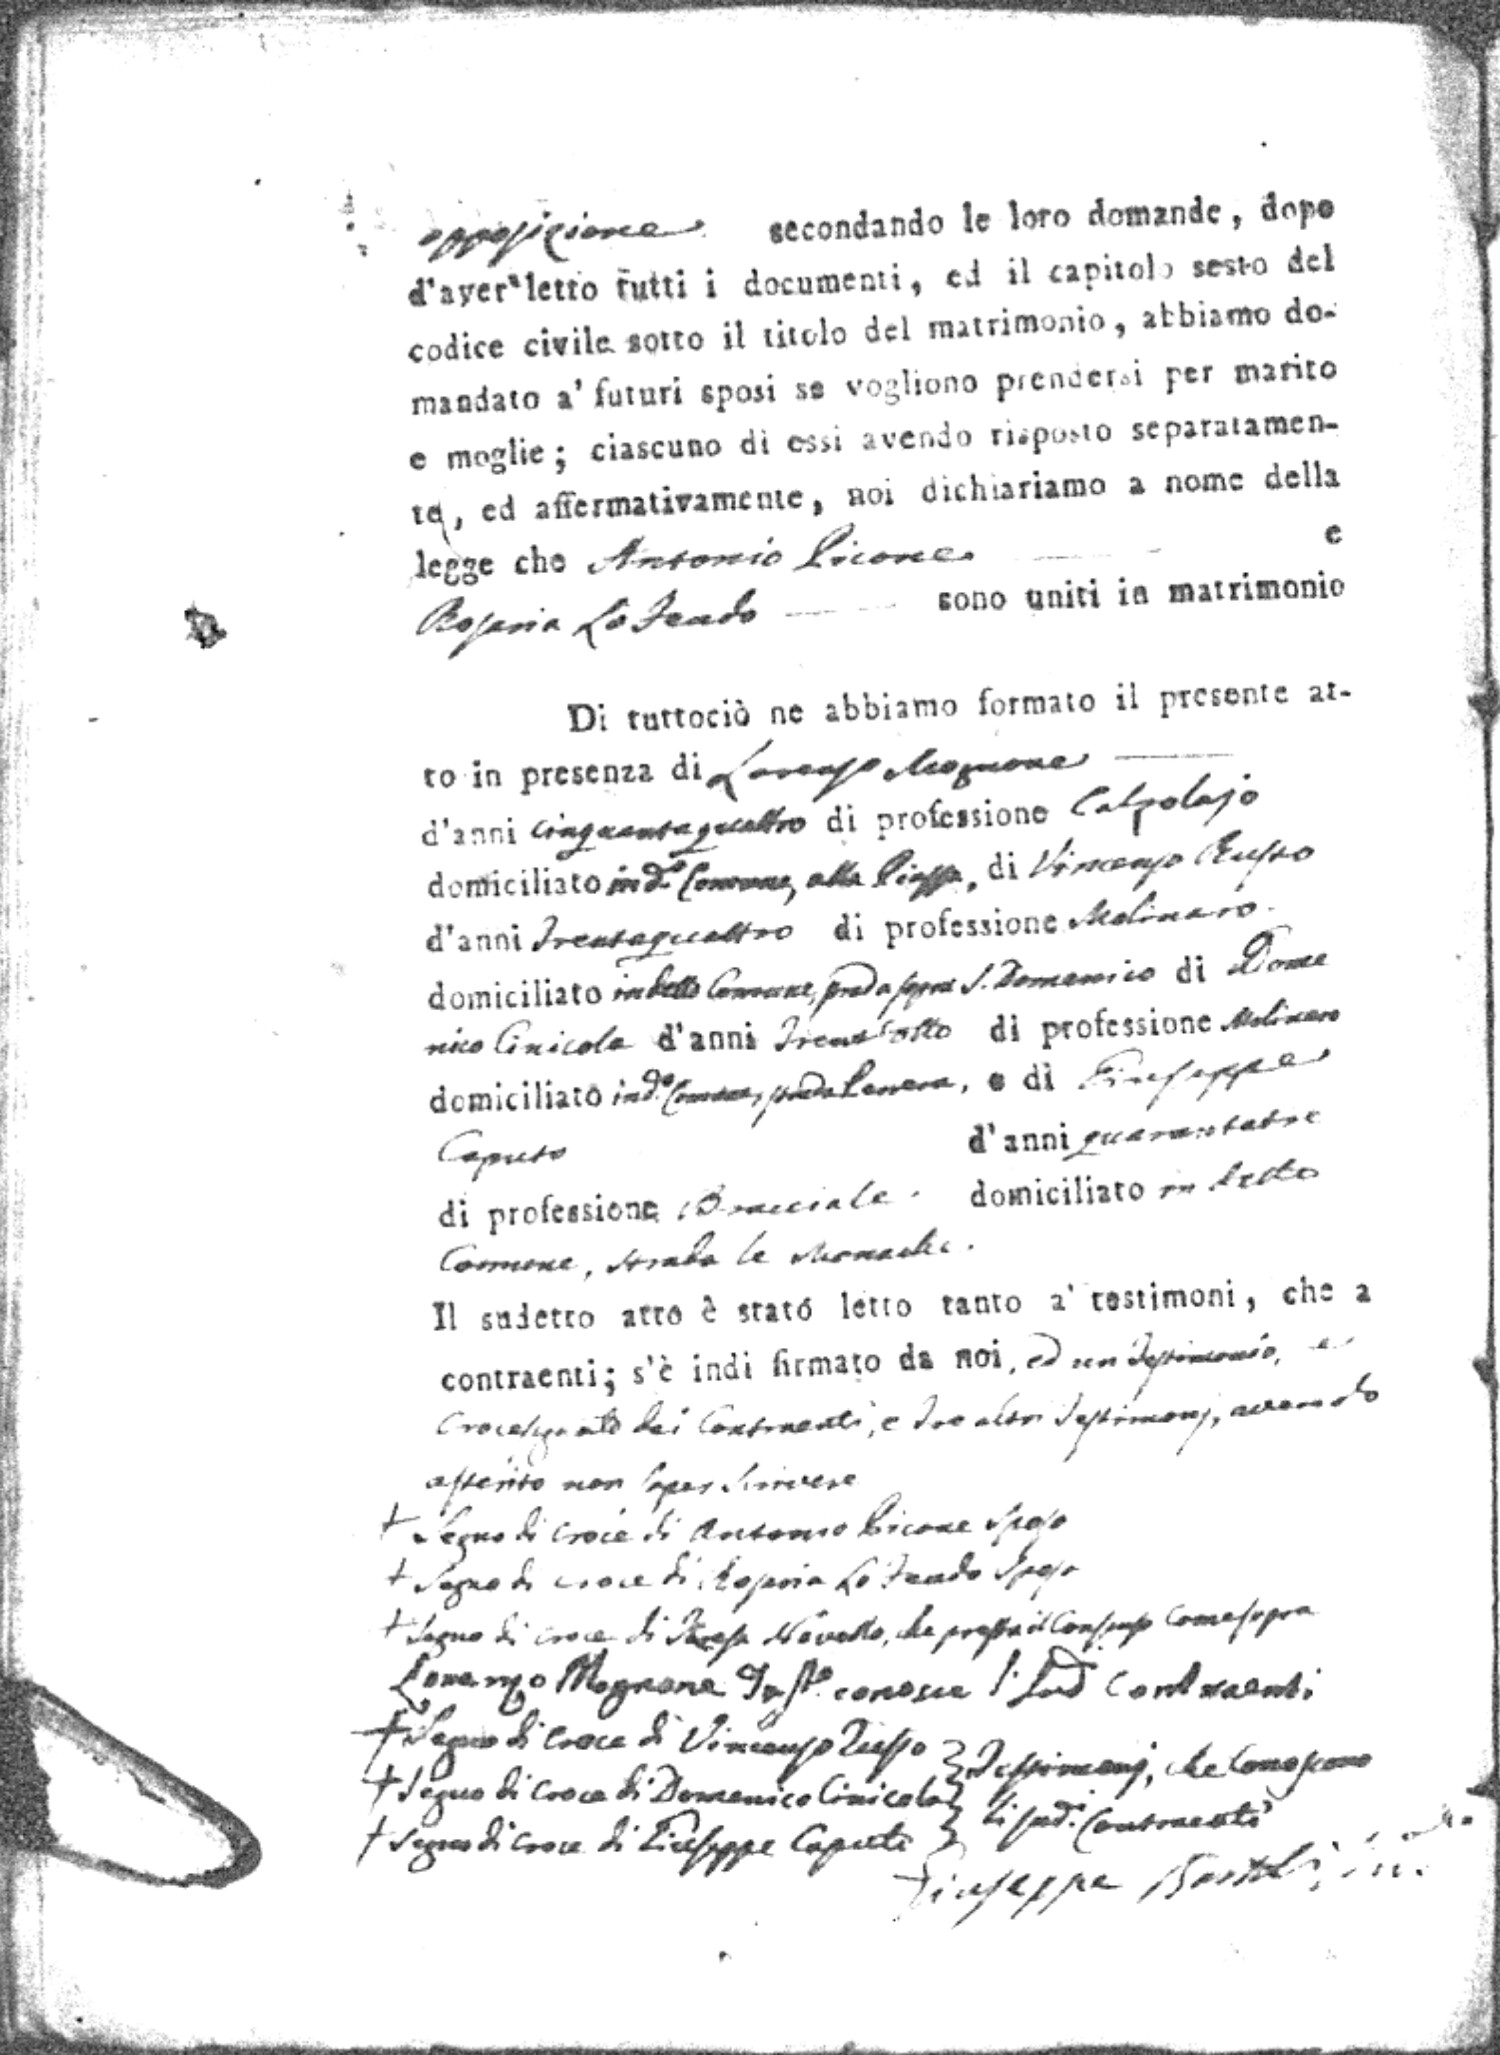 opposizione secondando le loro domande, dopo
d'aver letto tutti i documenti, ed il capitolo sesto del
codice civile sotto il titolo del matrimonio, abbiamo do-
mandato a' futuri sposi se vogliono prendersi per marito
e moglie; ciascuno di essi avendo risposto separatamen-
te, ed affermativamente, noi dichiariamo a nome della
legge che Antonio Picone e
Rosaria Lo Feudo sono uniti in matrimonio
Di tuttociò ne abbiamo formato il presente at-
to in presenza di Lorenzo Magnone
d'anni cinquantaquattro di professione Calzolajo
domiciliato in d.o Comune, alla Piazza, di Vincenzo Russo
d'anni Trentaquattro di professione Molinaro.
domiciliato in detto Comune, strada sopra S. Domenico di Dome
nico Cinicola d'anni Trent'otto di professione Molinaro
domiciliato in d.o Comune, strada, e di Giuseppe
Caputo d'anni quarantatre
di professione Bracciale. domiciliato in detto
Comune, strada le Monache.
Il sudetto atto è stato letto tanto a' testimoni, che a
contraenti; s'è indi firmato da noi, ed un Testimonio, e
Crocesegnato dai Contraenti, e tre altri Testimonj, avendo
asserito non saper scrivere
+ Segno di croce di Antonio Picone Sposo
+ Segno di croce di Rosaria Lo Feudo Sposa
+ Segno di croce di Teresa Novello, che presta il Consenso come sopra
Lorenzo Magnone Test.o conosce l' sud.i Contraenti
+ Segno di Croce di Vincenzo Russo } Testimonj, che Conoscono
+ Segno di Croce di Domenico Cinicola } li sud.i Contraenti
+ Segno di Croce di Giuseppe Caputo }
Giuseppe